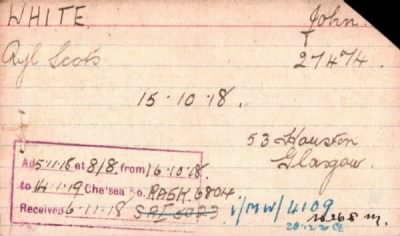 WHITE. John.
T
Ryl Scots 27474.
15.10.18.
53 Houston
Glasgow.
Ad 5.11.18 at 8/8. from 16.10.18.
to 14.1.19 Chelsea No. RASK 6804
Received 6.11.18 1/MW/4109